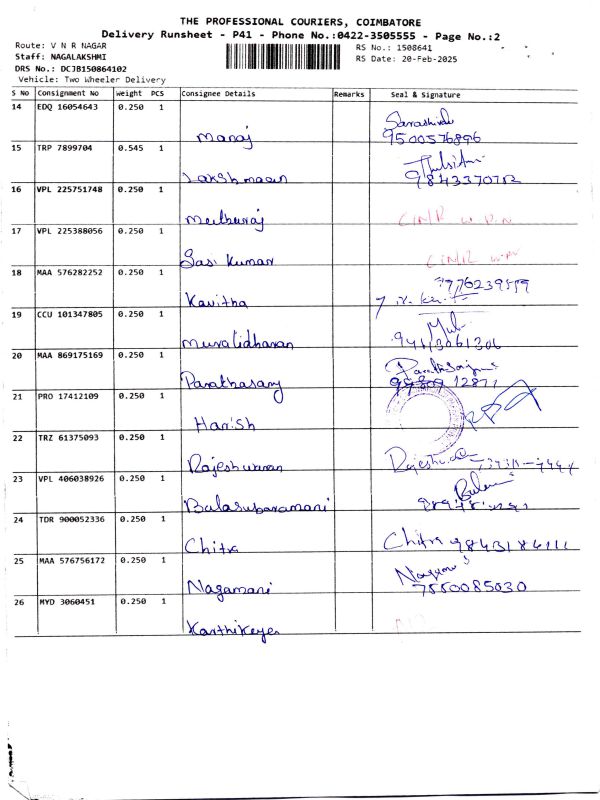 THE PROFESSIONAL COURIERS, COIMBATORE
Delivery Runsheet - P41 - Phone No.:0422-3505555 - Page No.:2
Route: V N R NAGAR
Staff: NAGALAKSHMI
DRS No.: DCJB150864102
Vehicle: Two Wheeler Delivery
RS No.: 1508641
RS Date: 20-Feb-2025
S No Consignment No Weight PCS Consignee Details Remarks Seal & Signature
14 EDQ 16054643 0.250 1
Manoj 9500576896
15 TRP 7899704 0.545 1
Lakshmanan 9843370752
16 VPL 225751748 0.250 1
Muthuraj
17 VPL 225388056 0.250 1
Sasi Kumar
18 MAA 576282252 0.250 1
Kavitha
19 CCU 101347805 0.250 1
Muralidharan
20 MAA 869175169 0.250 1
Parathasary
21 PRO 17412109 0.250 1
Harish
22 TRZ 61375093 0.250 1
Rajeshwaran
23 VPL 406038926 0.250 1
Balasubaramani
24 TDR 900052336 0.250 1
Chitra Chitra
25 MAA 576756172 0.250 1
Nagamani 7550085030
26 MYD 3060451 0.250 1
Karthikeyen